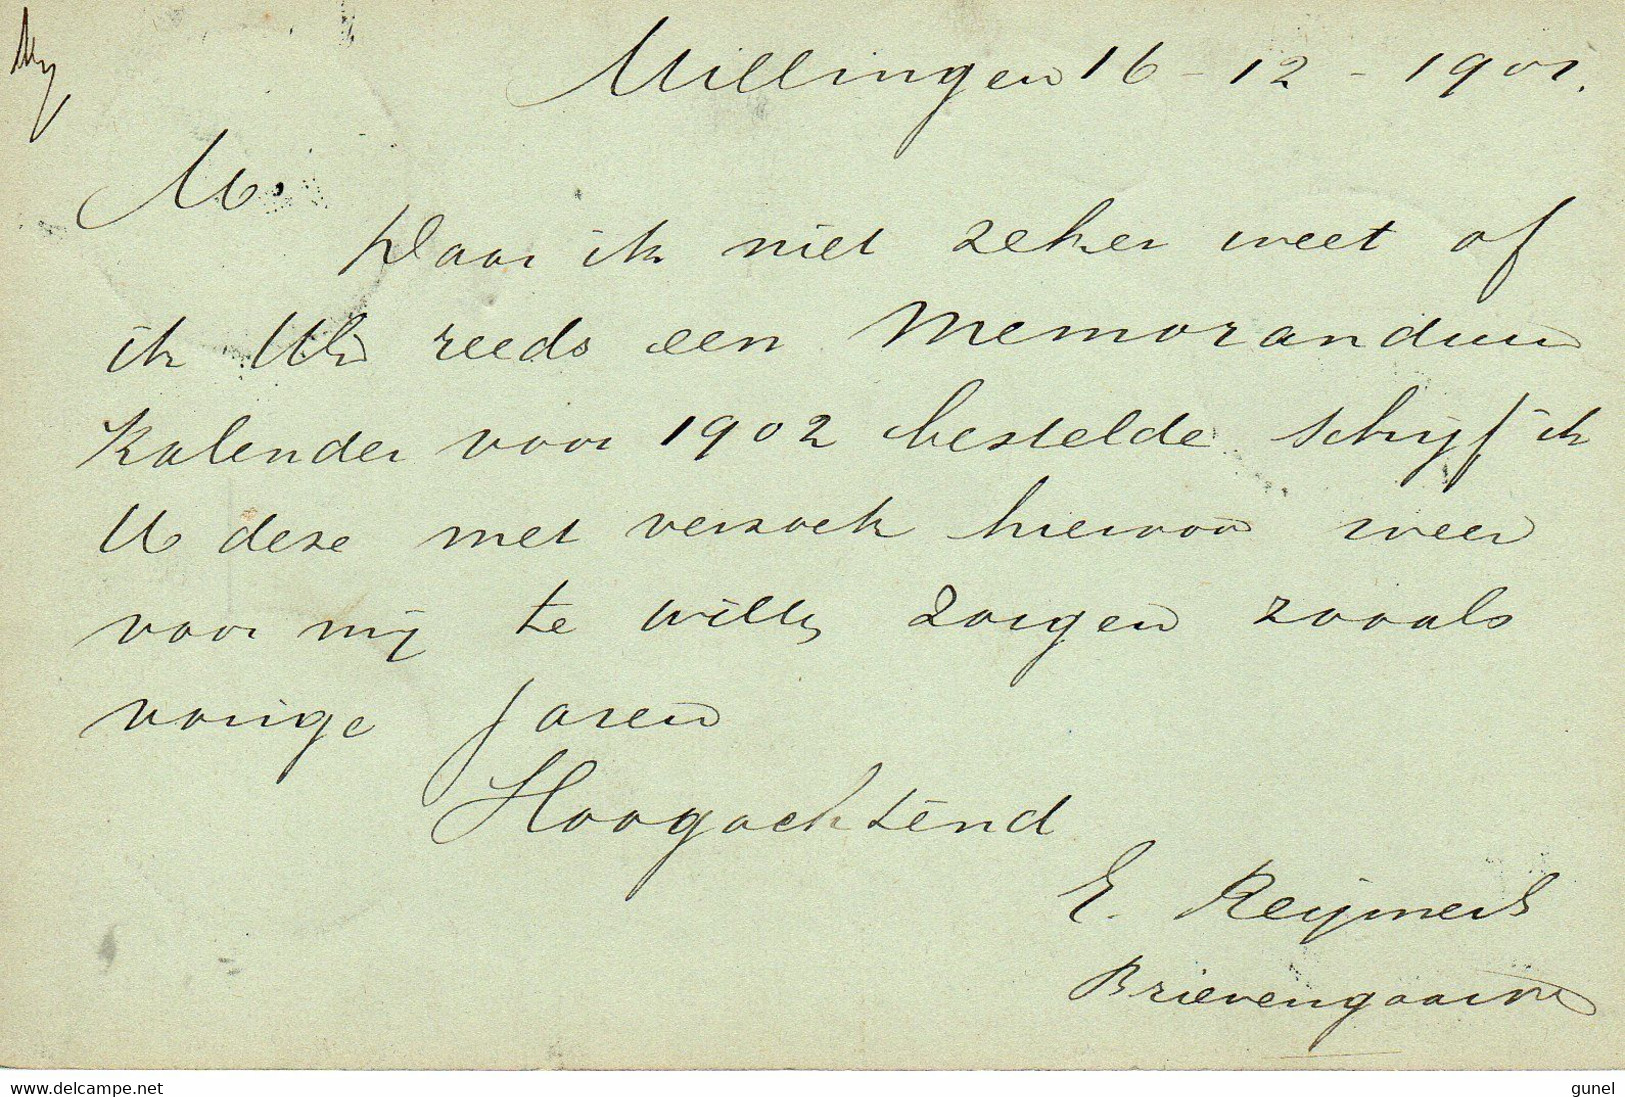 Millingen 16 - 12 - 1901.
M.
Daar ik niet zeker weet of
ik UEd reeds een Memorandum
Kalender voor 1902 bestelde schrijf ik
U deze met verzoek hiervoor weer
voor mij te willen zorgen zooals
vorige jaren
Hoogachtend
E. Reijmers
Brievengaarder
www.delcampe.net
gunel